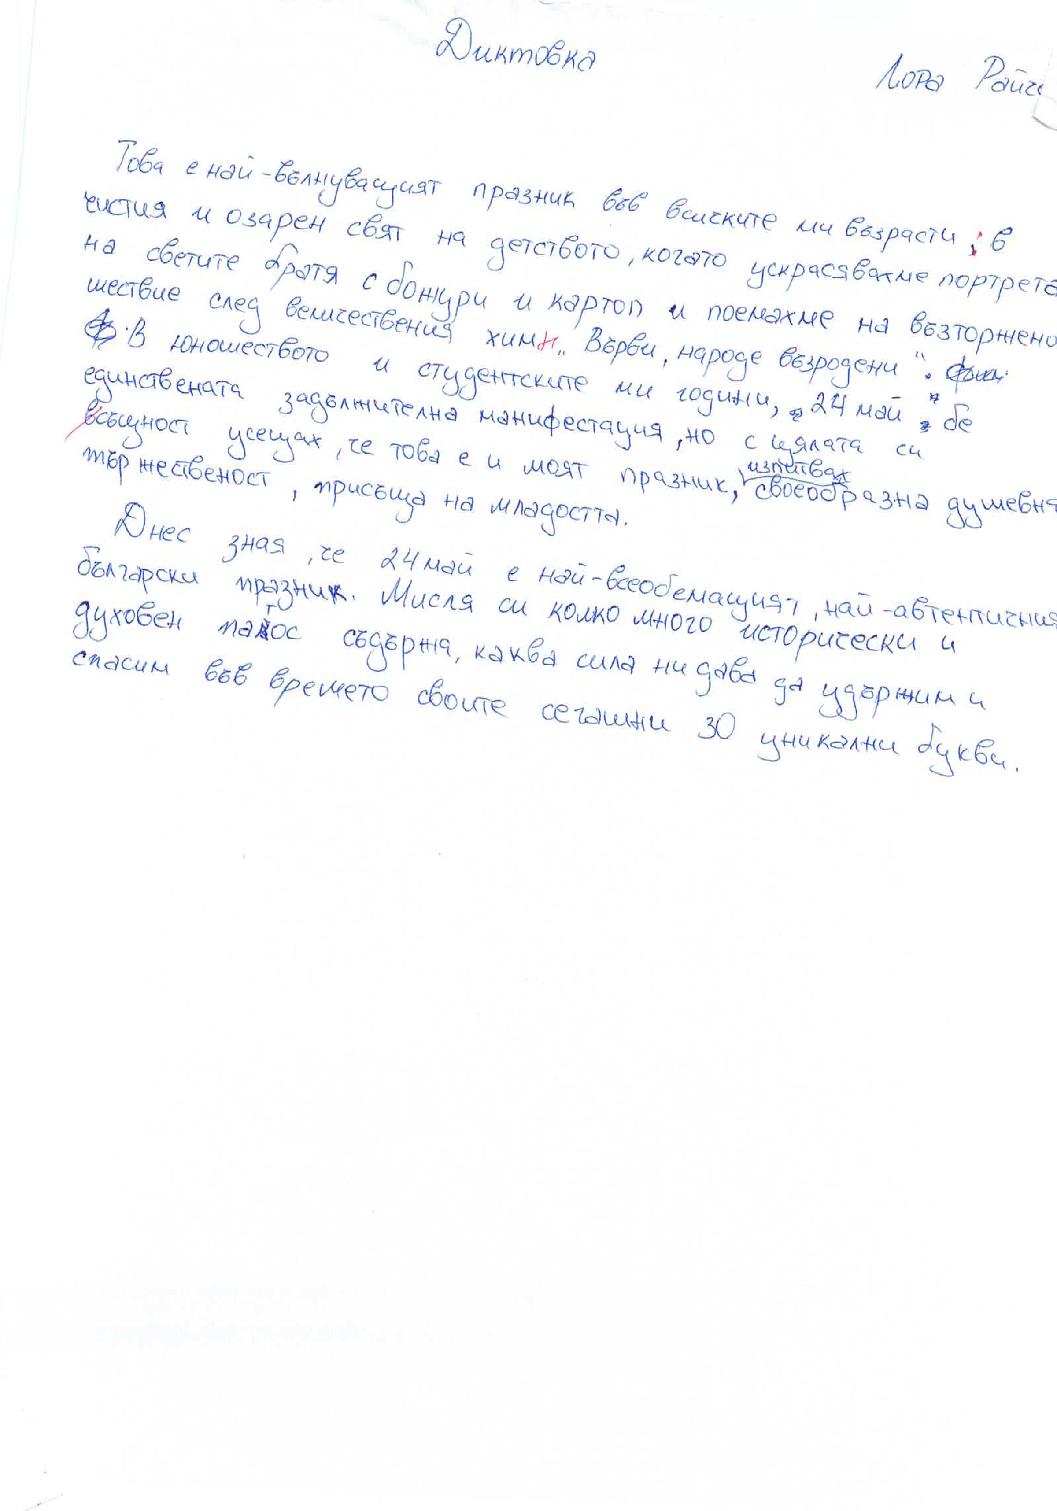 Диктовка
Лора Райч
Това е най-вълнуващият празник във всичките ми възрасти ; в
чистия и озарен свят на детството, когато украсявахме портрета
на светите братя с божури и картоп и поемахме на възторжено
шествие след величествения химн „Върви, народе възродени“.
В юношеството и студентските ми години, 24 май бе
единствената задължителна манифестация, но с цялата си
всъщност усещах, че това е и моят празник, изпитвах своеобразна душевна
тържественост, присъща на младостта.
Днес зная, че 24 май е най-всеобемащият, най-автентичния
български празник. Мисля си колко много исторически и
духовен патос съдържа, каква сила ни дава да удържим и
спасим във времето своите сегашни 30 уникални букви.